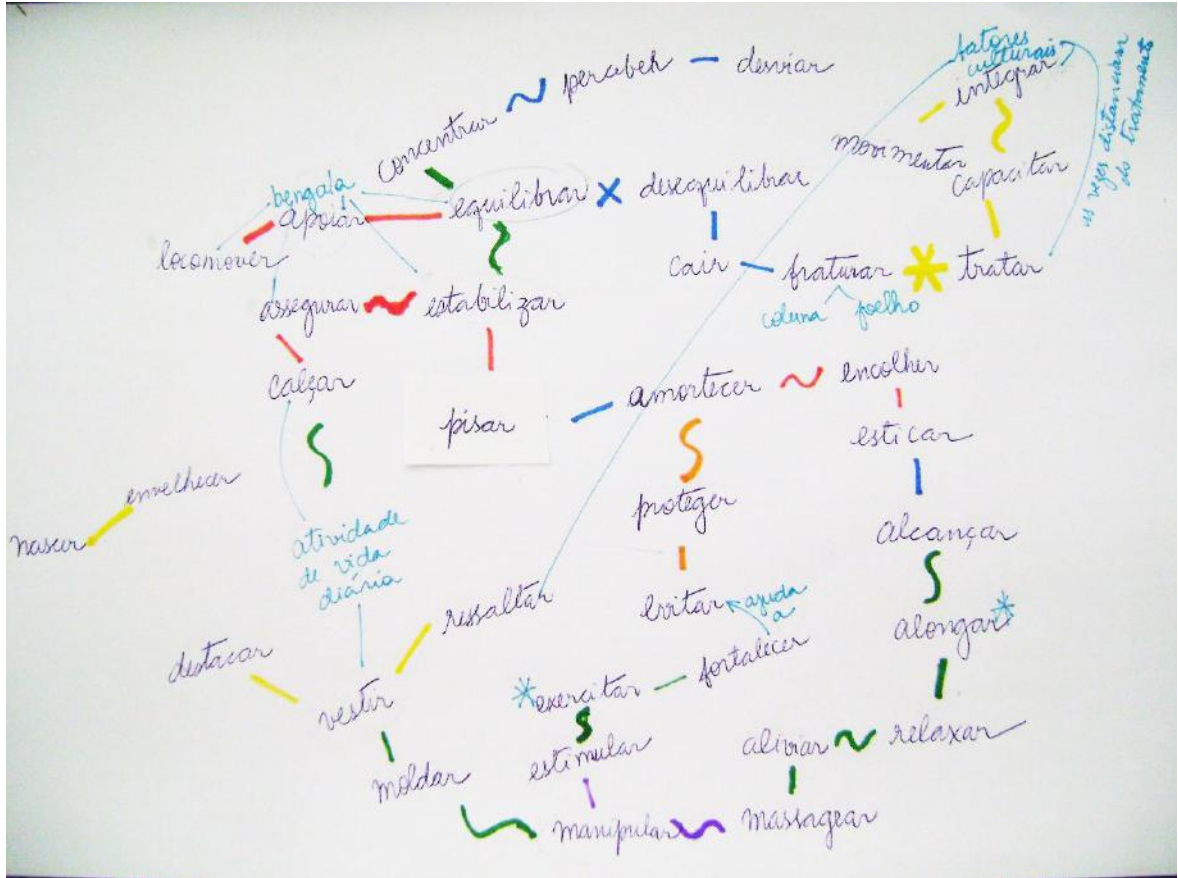 perceber
desviar
fatores
culturais
integrar
concentrar
movimentar
capacitar
às vezes distanciam
do tratamento
bengala
apoiar
equilibrar
desequilibrar
locomover
cair
fraturar
tratar
coluna
joelho
assegurar
estabilizar
calçar
pisar
amortecer
encolher
esticar
envelhecer
nascer
proteger
alcançar
atividade
de vida
diária
ressaltar
evitar
ajuda
a
alongar*
destacar
vestir
*exercitar
fortalecer
moldar
estimular
aliviar
relaxar
manipular
massagear